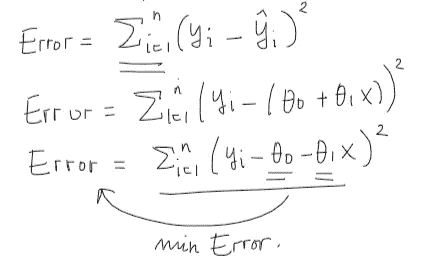 Error = Σᵢ₌₁ⁿ (yᵢ − ŷᵢ)²
Error = Σᵢ₌₁ⁿ (yᵢ − (θ₀ + θ₁x))²
Error = Σᵢ₌₁ⁿ (yᵢ − θ₀ − θ₁x)²
min Error.